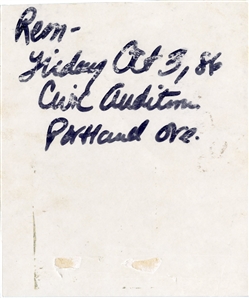 Rem-
Friday Oct 3, 86
Civic Auditm.
Portland ore.